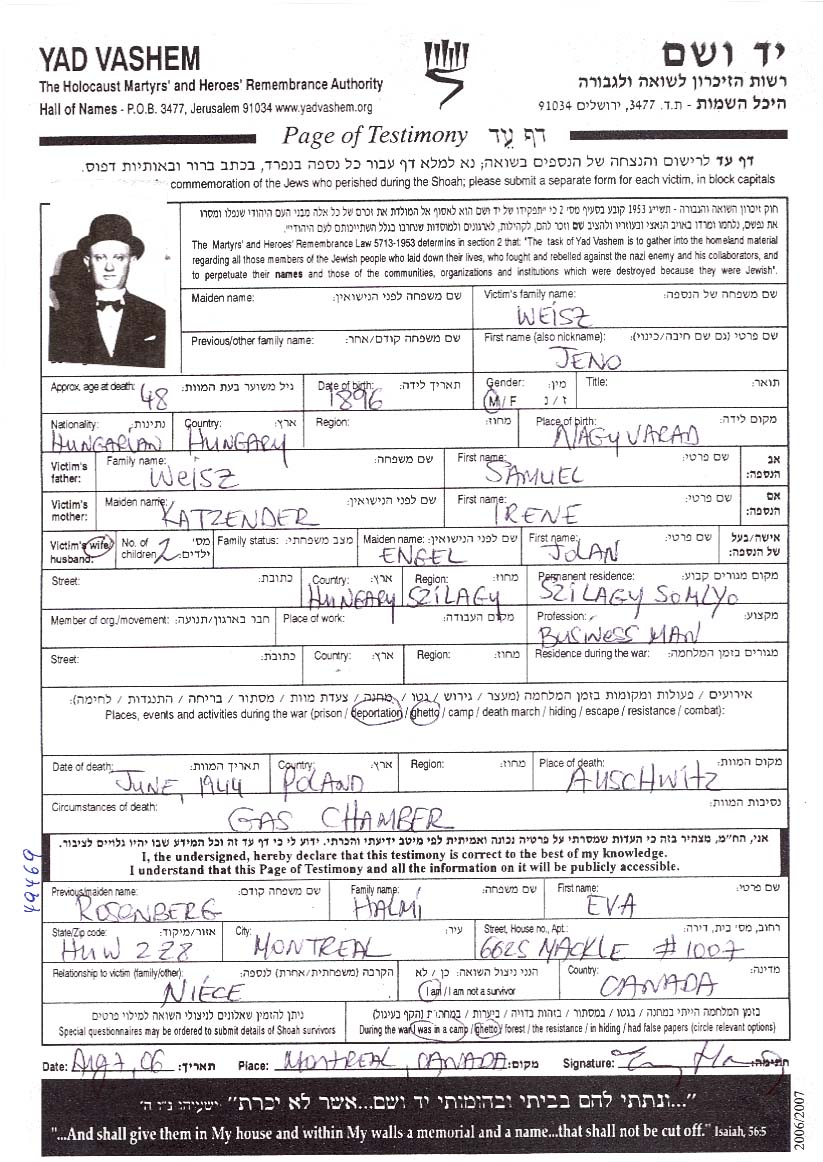 YAD VASHEM
יד ושם
The Holocaust Martyrs' and Heroes' Remembrance Authority
רשות הזיכרון לשואה ולגבורה
Hall of Names - P.O.B. 3477, Jerusalem 91034 www.yadvashem.org
היכל השמות - ת.ד. 3477, ירושלים 91034
Page of Testimony דף עֵד
דף עד לרישום והנצחה של הנספים בשואה; נא למלא דף עבור כל נספה בנפרד, בכתב ברור ובאותיות דפוס.
commemoration of the Jews who perished during the Shoah; please submit a separate form for each victim, in block capitals
חוק זיכרון השואה והגבורה - תשי"ג 1953 קובע בסעיף מס' 2 כי "תפקידו של יד ושם הוא לאסוף אל המולדת את זכרם של כל אלה מבני העם היהודי שנפלו ומסרו
את נפשם, נלחמו ומרדו באויב הנאצי ובעוזריו ולהציב שם וזכר להם, לקהילות, לארגונים ולמוסדות שנחרבו בגלל השתייכותם לעם היהודי".
The Martyrs' and Heroes' Remembrance Law 5713-1953 determins in section 2 that: "The task of Yad Vashem is to gather into the homeland material
regarding all those members of the Jewish people who laid down their lives, who fought and rebelled against the nazi enemy and his collaborators, and
to perpetuate their names and those of the communities, organizations and institutions which were destroyed because they were Jewish".
Maiden name: שם משפחה לפני הנישואין: Victim's family name: שם משפחה של הנספה:
WEISZ
Previous/other family name: שם משפחה קודם/אחר: First name (also nickname): שם פרטי (גם שם חיבה/כינוי):
JENO
Approx. age at death: גיל משוער בעת המוות: Date of birth: תאריך לידה: Gender: מין: Title: תואר:
48 1896 M / F ז / נ
Nationality: נתינות: Country: ארץ: Region: מחוז: Place of birth: מקום לידה:
HUNGARIAN HUNGARY NAGYVARAD
Victim's father: Family name: שם משפחה: First name: שם פרטי: אב הנספה:
WEISZ SAMUEL
Victim's mother: Maiden name: שם לפני הנישואין: First name: שם פרטי: אם הנספה:
KATZENDER IRENE
Victim's wife/ husband: No. of children: מס' ילדים: Family status: מצב משפחתי: Maiden name: שם לפני הנישואין: First name: שם פרטי: אישה/בעל של הנספה:
2 ENGEL JOLAN
Street: כתובת: Country: ארץ: Region: מחוז: Permanent residence: מקום מגורים קבוע:
HUNGARY SZILAGY SZILAGY SOMLYO
Member of org./movement: חבר בארגון/תנועה: Place of work: מקום העבודה: Profession: מקצוע:
BUSINESS MAN
Street: כתובת: Country: ארץ: Region: מחוז: Residence during the war: מגורים בזמן המלחמה:
אירועים / פעולות ומקומות בזמן המלחמה (מעצר / גירוש / גטו / מחנה / צעדת מוות / מסתור / בריחה / התנגדות / לחימה):
Places, events and activities during the war (prison / deportation / ghetto / camp / death march / hiding / escape / resistance / combat):
Date of death: תאריך המוות: Country: ארץ: Region: מחוז: Place of death: מקום המוות:
JUNE, 1944 POLAND AUSCHWITZ
Circumstances of death: נסיבות המוות:
GAS CHAMBER
אני, החי"מ, מצהיר בזה כי העדות שמסרתי על פרטיה נכונה ואמיתית לפי מיטב ידיעתי והכרתי. ידוע לי כי דף עד זה וכל המידע שבו יהיו גלויים לציבור.
I, the undersigned, hereby declare that this testimony is correct to the best of my knowledge.
I understand that this Page of Testimony and all the information on it will be publicly accessible.
49469
Previous/maiden name: שם משפחה קודם: Family name: שם משפחה: First name: שם פרטי:
ROSENBERG HALMI EVA
State/Zip code: אזור/מיקוד: City: עיר: Street, House no., Apt.: רחוב, מס' בית, דירה:
H4W 2Z8 MONTREAL 6625 MACKLE #1007
Relationship to victim (family/other): הקרבה (משפחתית/אחרת) לנספה: הנני ניצול השואה: כן / לא Country: מדינה:
NIECE I am / I am not a survivor CANADA
ניתן להזמין שאלונים לניצולי השואה למילוי פרטים בזמן המלחמה הייתי במחנה / בגטו / במסתור / בזהות בדויה / ביערות / במחתרת (הקף בעיגול)
Special questionnaires may be ordered to submit details of Shoah survivors During the war I was in a camp / ghetto / forest / the resistance / in hiding / had false papers (circle relevant options)
Date: Aug 7, 06 תאריך: Place: MONTREAL, CANADA מקום: Signature: חתימה:
"...ונתתי להם בביתי ובחומותי יד ושם...אשר לא יכרת" ישעיהו נ"ו ה'
"...And shall give them in My house and within My walls a memorial and a name...that shall not be cut off." Isaiah, 56:5
2006/2007